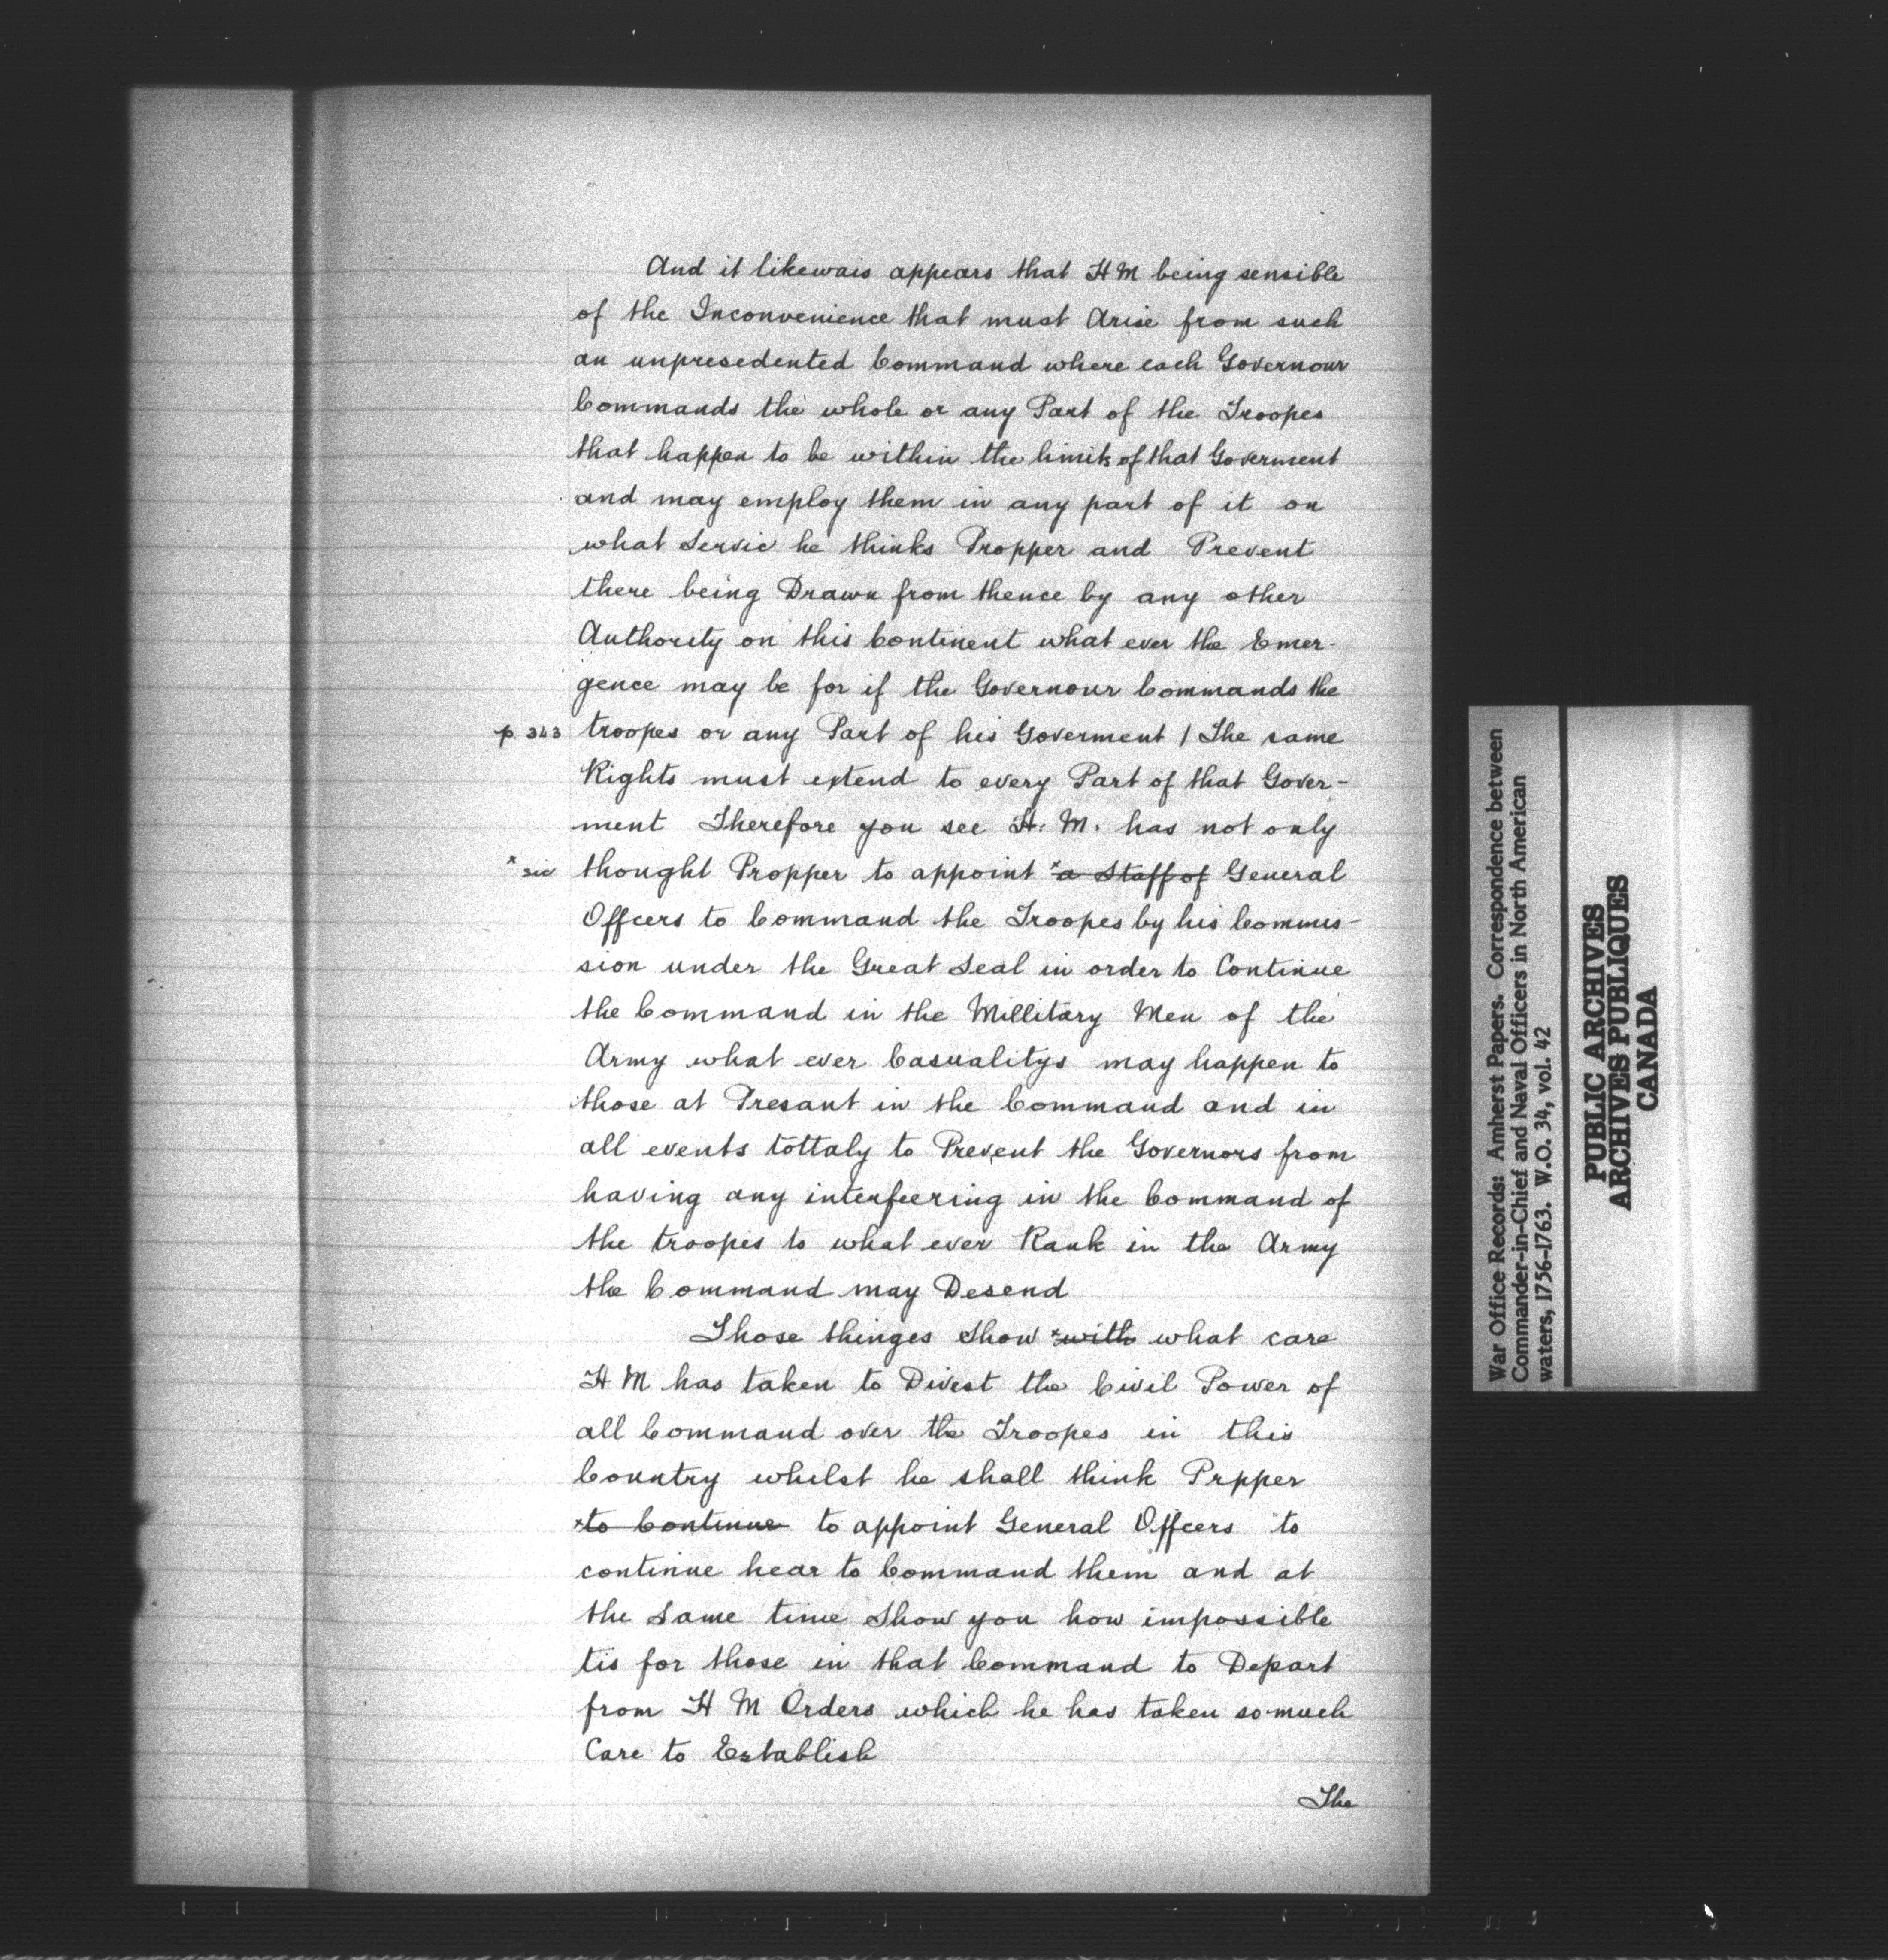 And it likewais appears that H M being sensible
of the Inconvenience that must Arise from such
an unpresedented Command where each Governour
Commands the whole or any Part of the Troopes
that happen to be within the limits of that Goverment
and may employ them in any part of it on
what Servic he thinks Propper and Prevent
there being Drawn from thence by any other
Authority on this Continent what ever the Emer-
gence may be for if the Governour Commands the
p. 343 troopes or any Part of his Goverment / The same
Rights must extend to every Part of that Gover-
ment Therefore you see H. M. has not only
x sic thought Propper to appoint x a Staff of General
Offcers to Command the Troopes by his Commis-
sion under the Great Seal in order to Continue
the Command in the Millitary Men of the
Army what ever Casualitys may happen to
those at Presant in the Command and in
all events tottaly to Prevent the Governors from
having any interfeering in the Command of
the troopes to what ever Rank in the Army
the Command may Desend
Those thinges Show x with what care
H M has taken to Divest the Civil Power of
all Command over the Troopes in this
Country whilst he shall think Prpper
x to Continue to appoint General Offcers to
continue hear to Command them and at
the Same time Show you how impossible
tis for those in that Command to Depart
from H M Orders which he has taken so much
Care to Establish
The
War Office Records: Amherst Papers. Correspondence between
Commander-in-Chief and Naval Officers in North American
waters, 1756-1763. W.O. 34, vol. 42
PUBLIC ARCHIVES
ARCHIVES PUBLIQUES
CANADA